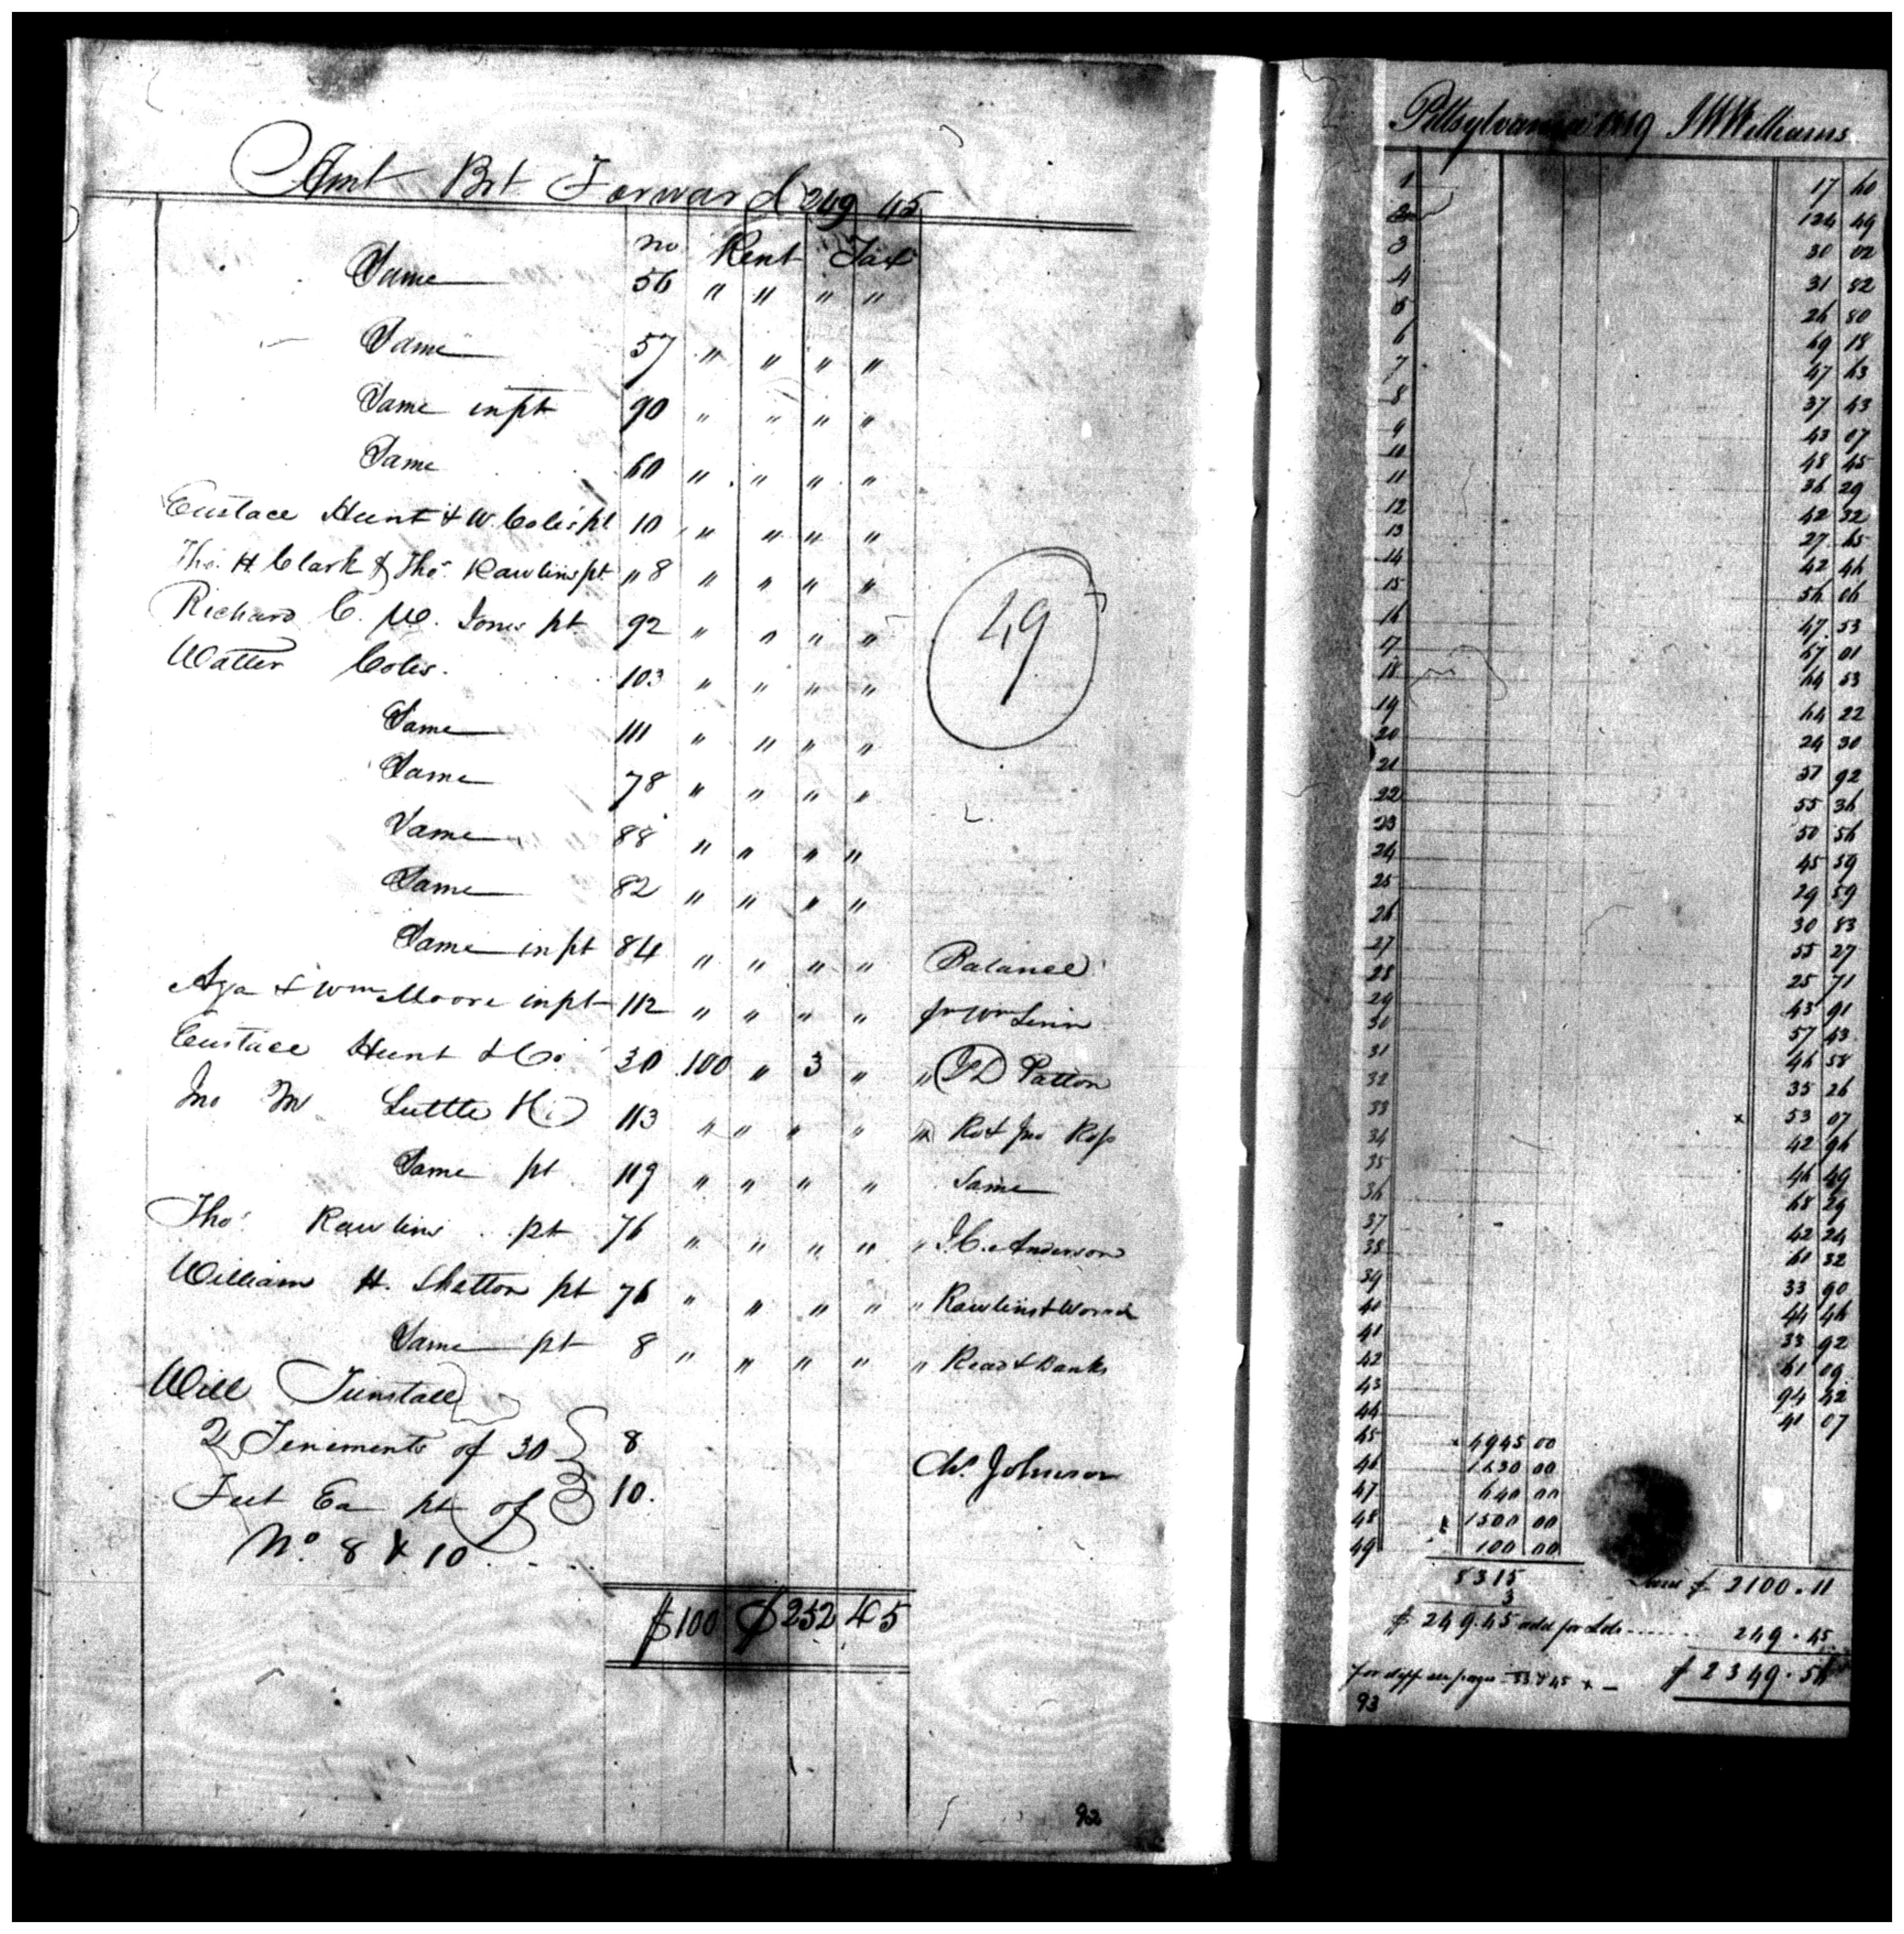 Amt Brt Forward 249 45
no Rent Tax
Same 56 " " " "
Same 57 " " " "
Same in pt 90 " " " "
Same 60 " " " "
Eustace Hunt & W. Coles pt 10 " " " "
Tho. H Clark & Thos. Rawlins pt " 8 " " " "
Richard C. W. Jones pt 92 " " " "
Walter Coles. 103 " " " "
Same 111 " " " "
Same 78 " " " "
Same 88 " " " "
Same 82 " " " "
Same in pt 84 " " " " Balance
& Wm Moore in pt 112 " " " " fr Wm
Eustace Hunt & Co. 30 100 " 3 " " J D Patton
Jno M 113 " " " " " Ro & Jno Ross
Same pt 119 " " " " Same
Thos. Rawlins pt 76 " " " " " J. C. Anderson
William H. Shelton pt 76 " " " " " Rawlins &
Same pt 8 " " " " " Read & Banks
Will Tunstall
2 Tenements of 30 8
Chs. Johnson
Feet Ea pt of 10.
No. 8 & 10
$100 $252 45
49
92
Pittsylvania 1819 J W Williams
1 17 60
2 124 49
3 30 02
4 31 82
5 26 80
6 69 18
7 47 63
8 37 43
9 43 07
10 48 45
11 36 29
12 42 32
13 27 65
14 42 46
15 56 06
16 47 53
17 67 01
18 64 53
19 64 22
20 24 30
21 37 92
22 55 36
23 50 56
24 45 59
25 29 59
26 30 83
27 55 27
28 25 71
29 43 91
30 57 43
31 46 58
32 35 26
33 x 53 07
34 42 96
35 46 49
36 68 29
37 42 24
38 61 32
39 33 90
40 44 46
41 33 92
42 61 09
43 94 42
44 41 07
45 x 4945 00
46 1130 00
47 640 00
48 1500 00
49 100 00
8315 $ 2100.11
3
$ 249.45 add for Lots 249.45
for diff see pages 33 & 45 x $ 2349.56
93